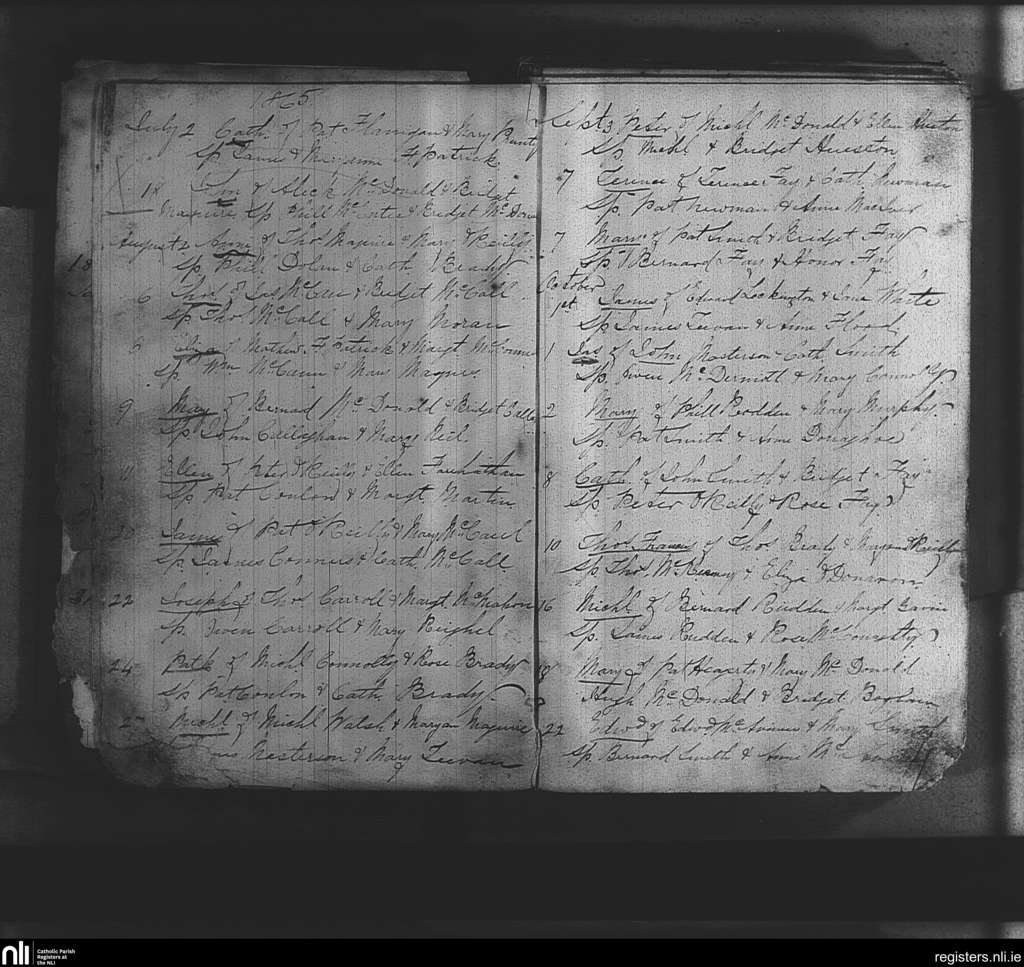 1865
July 2 Cath. of Pat Flanigan & Mary Brunty
Sp James & Fitzpatrick
18 of Alick McDonald & Bridget
Maguire Sp. Phill McEntee & Bridget McDon
August 2 Anne of Thos Maguire & Mary O'Reilly
Sp Phill Dolan & Cath Brady
6 Thos of Jas McGee & Bridget McCall
Sp Thos McCall & Mary Moran
8 Eliza of Mathew F. Patrick & Margt McConnell
Sp Wm McCann & Mary Maguire
9 May of Bernard McDonald & Bridget
Sp John Callaghan & Mary Neil
11 Ellen of Peter O'Reilly & Ellen
Sp Pat Conlon & Margt. Martin
20 James of Pat O'Reilly & Mary McCaul
Sp James Connors & Cath. McCall
22 Joseph of Thos Carroll & Margt McMahon
Sp. Owen Carroll & Mary Reighel
24 Patk of Michl Connolly & Rose Brady
Sp Pat Conlon & Cath Brady
27 Michl. of Michl Walsh & Maryan Maguire
Masterson & Mary Teevan
Sept 3 Peter of Michl McDonald & Ellen Hueston
Sp Michl & Bridget Hueston
7 Terence of Terence Fay & Cath. Newman
Sp. Pat Newman & Anne
7 Mary of Pat Smith & Bridget Fay
Sp Bernard Fay & Honor Fay
October
1st James of Edward Lockington & Jane White
Sp James Teevan & Anne Flood
1 Jas of John Masterson & Cath. Smith
Sp. Owen McDermott & Mary Connolly
2 Mary of Phill Rodden & Mary Murphy
Sp. Pat Smith & Anne Donaghoe
8 Cath. of John Smith & Bridget Fay
Sp Peter O'Reilly & Rose Fay
10 Thos Francis of Thos Brady & Maryan O'Reilly
Sp. Thos. McKearney & Eliza O'Donavon
16 Michl of Bernard Rudden & Margt Gavin
Sp. James Rudden & Rose McConnolly
19 Mary of Pat Hegarty & Mary McDonald
Hugh McDonald & Bridget
22 Edwd of Edwd & Mary Smith
Sp Bernard Smith & Anne Mc
nli
Catholic Parish
Registers at
the NLI
registers.nli.ie